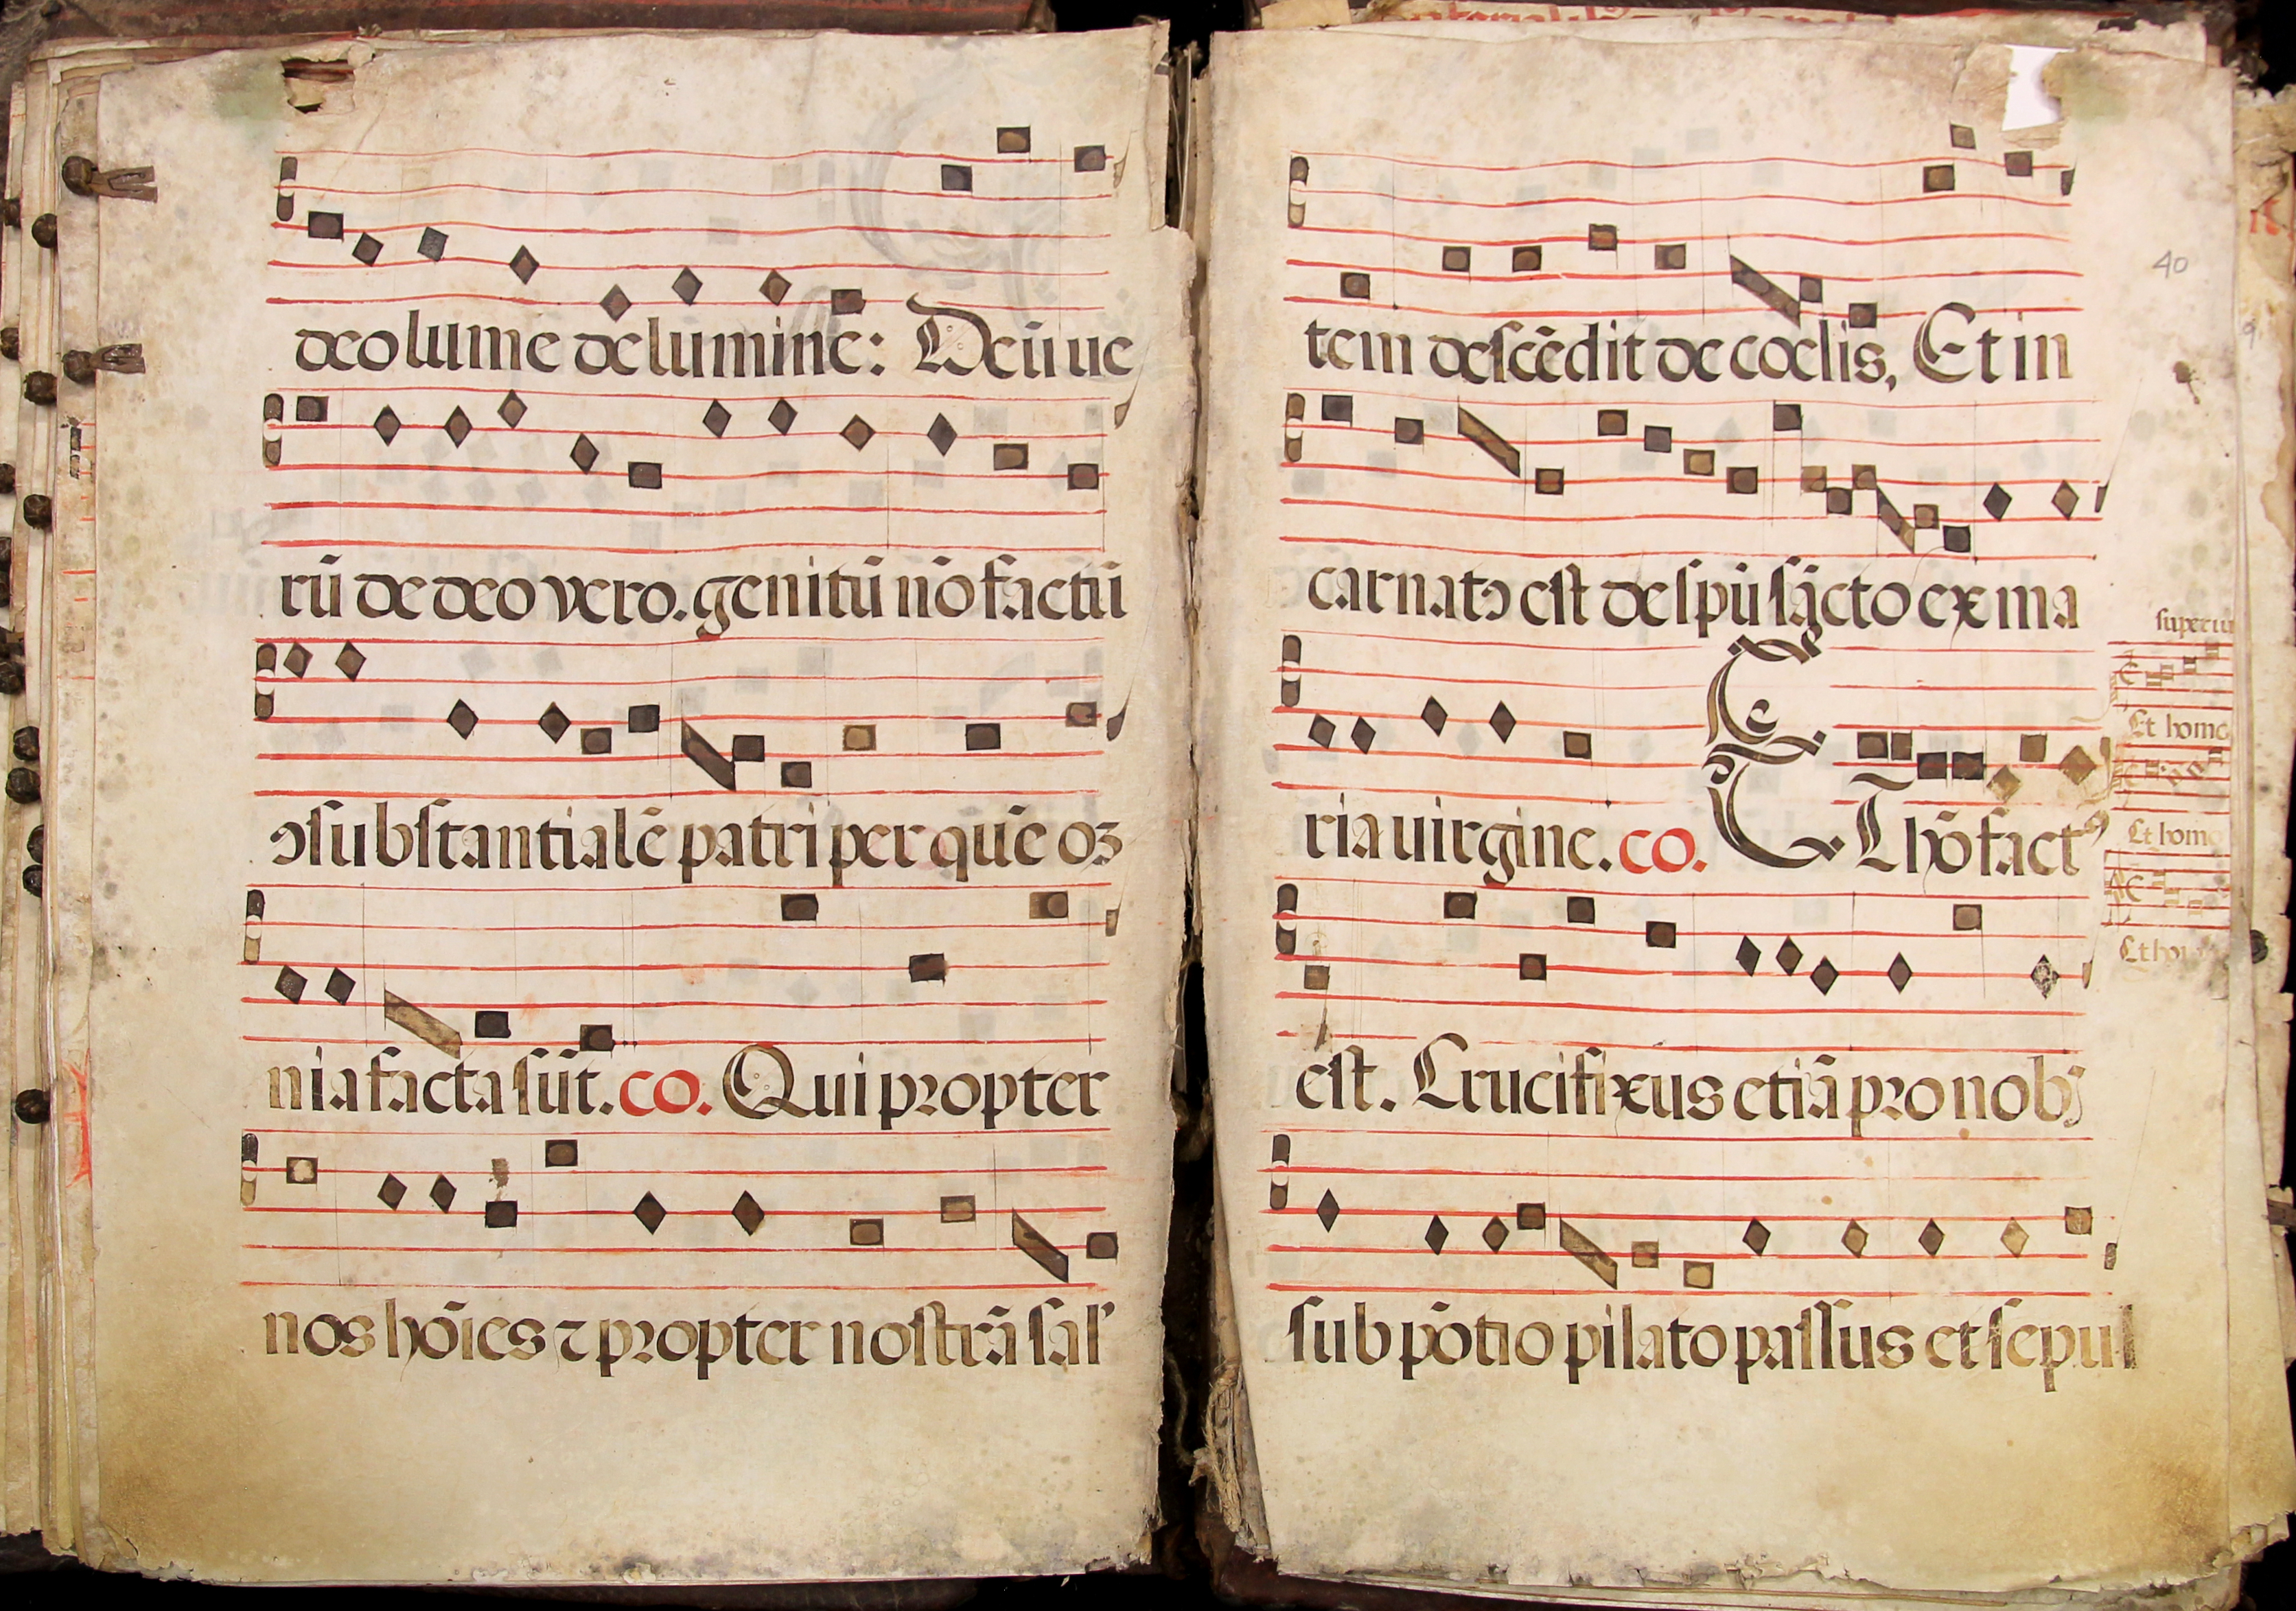 deo lumē de lumine: Deū ue
rū de deo vero. genitū nō factū
ɔsubstantialē patri per quē oꝫ
nia facta sūt. co. Qui propter
nos hōīes ⁊ propter nostrā sal'
tem descēdit de cœlis, Et in
carnatꝰ est de spū sācto ex ma
ria uirgine. co. Et hō factꝰ
est. Crucifixus etiā pro nobꝫ
sub pōtio pilato passus et sepul
40
Et homo
Et homo